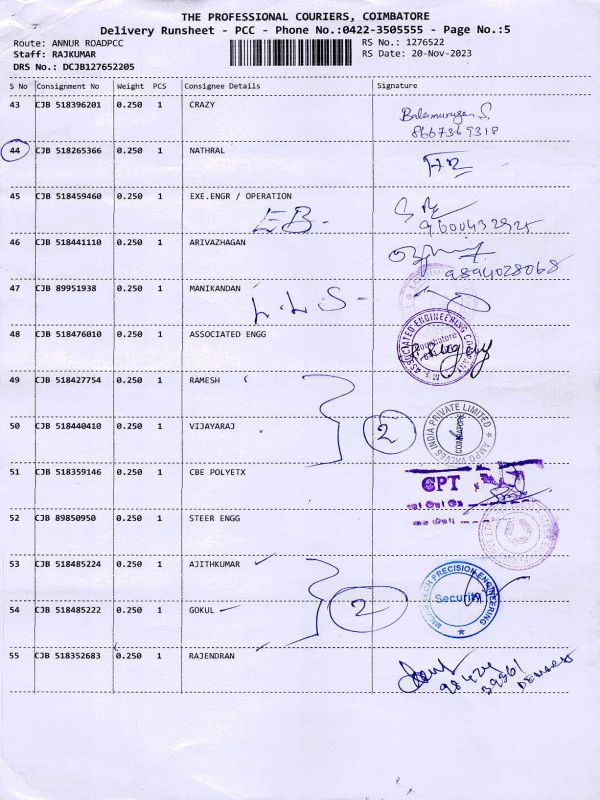 THE PROFESSIONAL COURIERS, COIMBATORE
Delivery Runsheet - PCC - Phone No.:0422-3505555 - Page No.:5
Route: ANNUR ROADPCC
RS No.: 1276522
Staff: RAJKUMAR
RS Date: 20-Nov-2023
DRS No.: DCJB127652205
S No Consignment No Weight PCS Consignee Details Signature
43 CJB 518396201 0.250 1 CRAZY
Balamurugan S.
8667369318
44 CJB 518265366 0.250 1 NATHRAL
45 CJB 518459460 0.250 1 EXE.ENGR / OPERATION
EB-
9600432925
46 CJB 518441110 0.250 1 ARIVAZHAGAN
9894028068
47 CJB 89951938 0.250 1 MANIKANDAN
L.L.S-
48 CJB 518476010 0.250 1 ASSOCIATED ENGG
M/s ASSOCIATED ENGINEERING COMPANY
Coimbatore
49 CJB 518427754 0.250 1 RAMESH
50 CJB 518440410 0.250 1 VIJAYARAJ
2
AMPO VALVES INDIA PRIVATE LIMITED
COIMBATORE
51 CJB 518359146 0.250 1 CBE POLYETX
CPT
52 CJB 89850950 0.250 1 STEER ENGG
53 CJB 518485224 0.250 1 AJITHKUMAR
54 CJB 518485222 0.250 1 GOKUL
2
PRECISION ENGINEERING
Security
55 CJB 518352683 0.250 1 RAJENDRAN
98424
39361